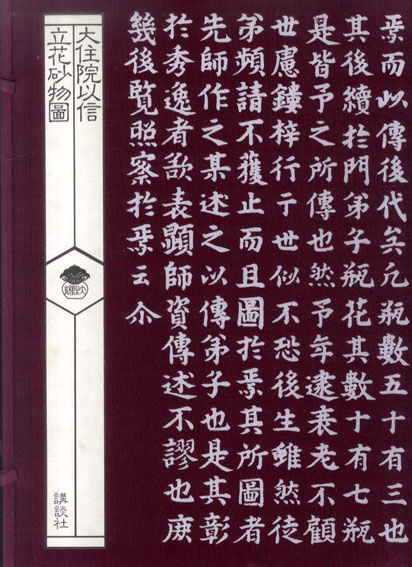 焉而以傳後代矣凢瓶數五十有三也
其後續於門弟子瓶花其數十有七瓶
是皆予之所傳也然予年逮衰老不顧
世慮鏤梓行于世似不恐後生雖然徒
弟頻請不獲止而且圖於焉其所圖者
先師作之某述之以傳弟子也是其彰
於秀逸者歟表顯師資傳述不謬也庶
幾後覧照察於焉云介
大住院以信
立花砂物圖
講談社